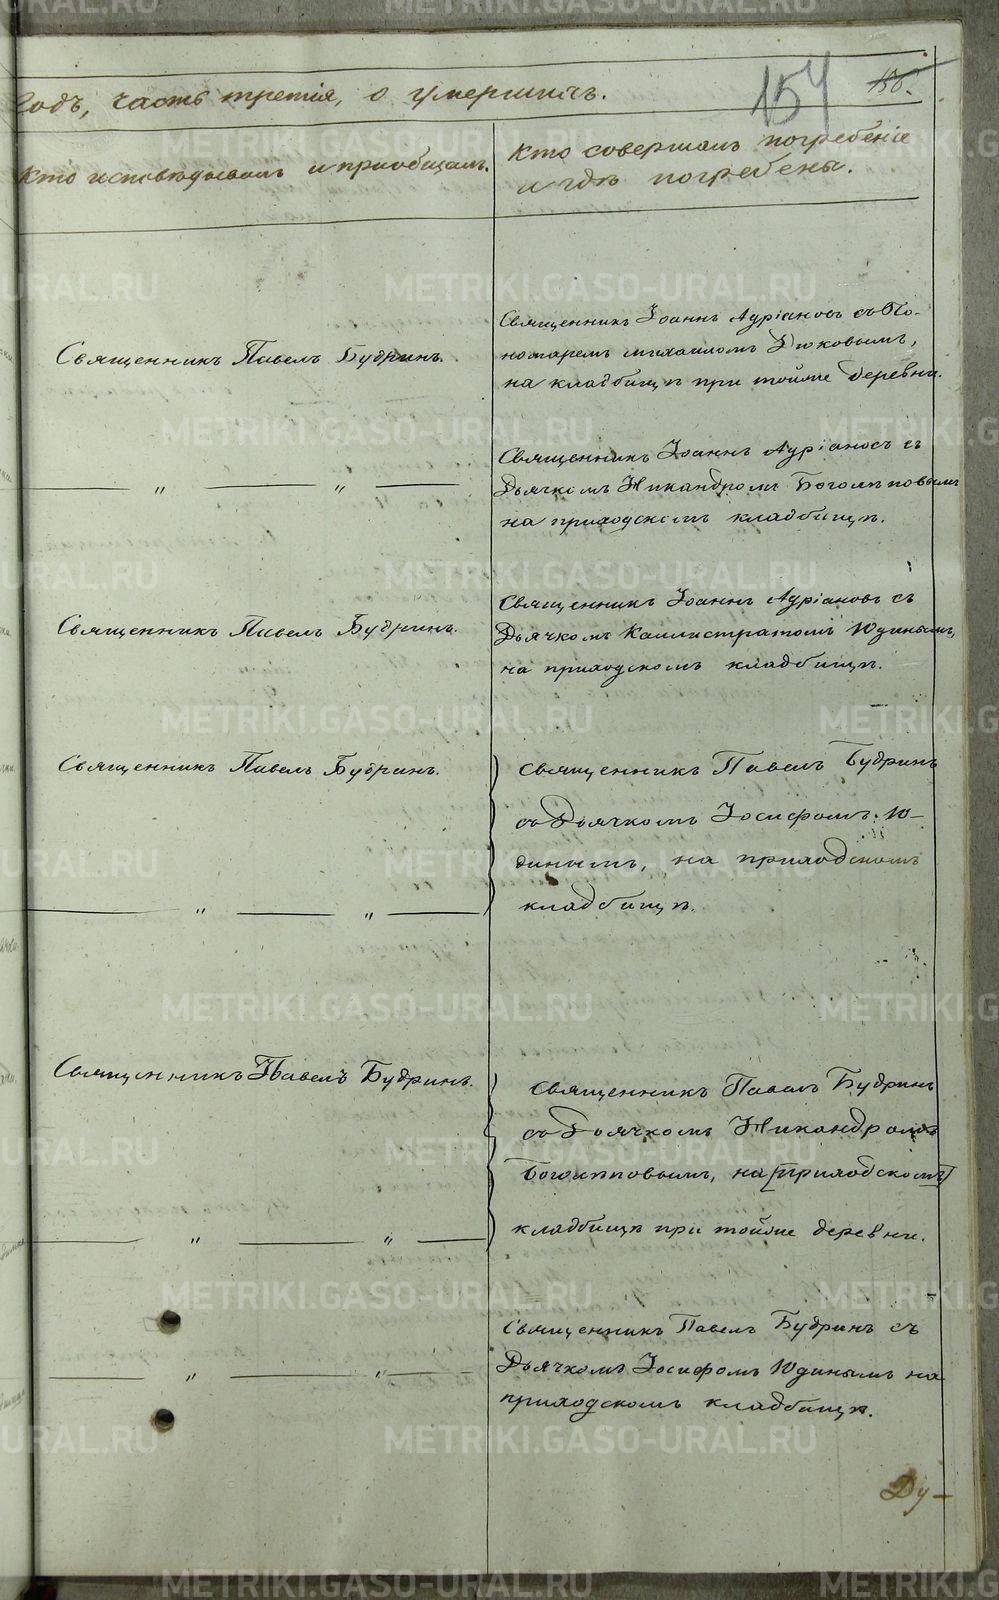 Годъ, часть третія, о умершихъ.
154
156.
Кто исповѣдывалъ и пріобщалъ.
Кто совершалъ погребеніе
и гдѣ погребены.
Священникъ Павелъ Будринъ.
Священникъ Іоаннъ Адріановъ съ По-
номаремъ Михаиломъ Дюковымъ,
на кладбищѣ при тойже деревни.
— „ — „ —
Священникъ Іоаннъ Адріановъ съ
Дьячкомъ Никандромъ Боголѣповымъ
на приходскомъ кладбищѣ.
Священникъ Павелъ Будринъ.
Священникъ Іоаннъ Адріановъ съ
Дьячкомъ Каллистратомъ Юдинымъ,
на приходскомъ кладбищѣ.
Священникъ Павелъ Будринъ.
— „ — „ —
Священникъ Павелъ Будринъ
съ Дьячкомъ Іосифомъ Ю-
динымъ, на приходскомъ
кладбищѣ.
Священникъ Павелъ Будринъ.
— „ — „ —
Священникъ Павелъ Будринъ
съ Дьячкомъ Никандромъ
Боголѣповымъ, на [приходскомъ]
кладбищѣ при тойже деревни.
— „ — „ —
Священникъ Павелъ Будринъ съ
Дьячкомъ Іосифомъ Юдинымъ на
приходскомъ кладбищѣ.
Ду-
METRIKI.GASO-URAL.RU